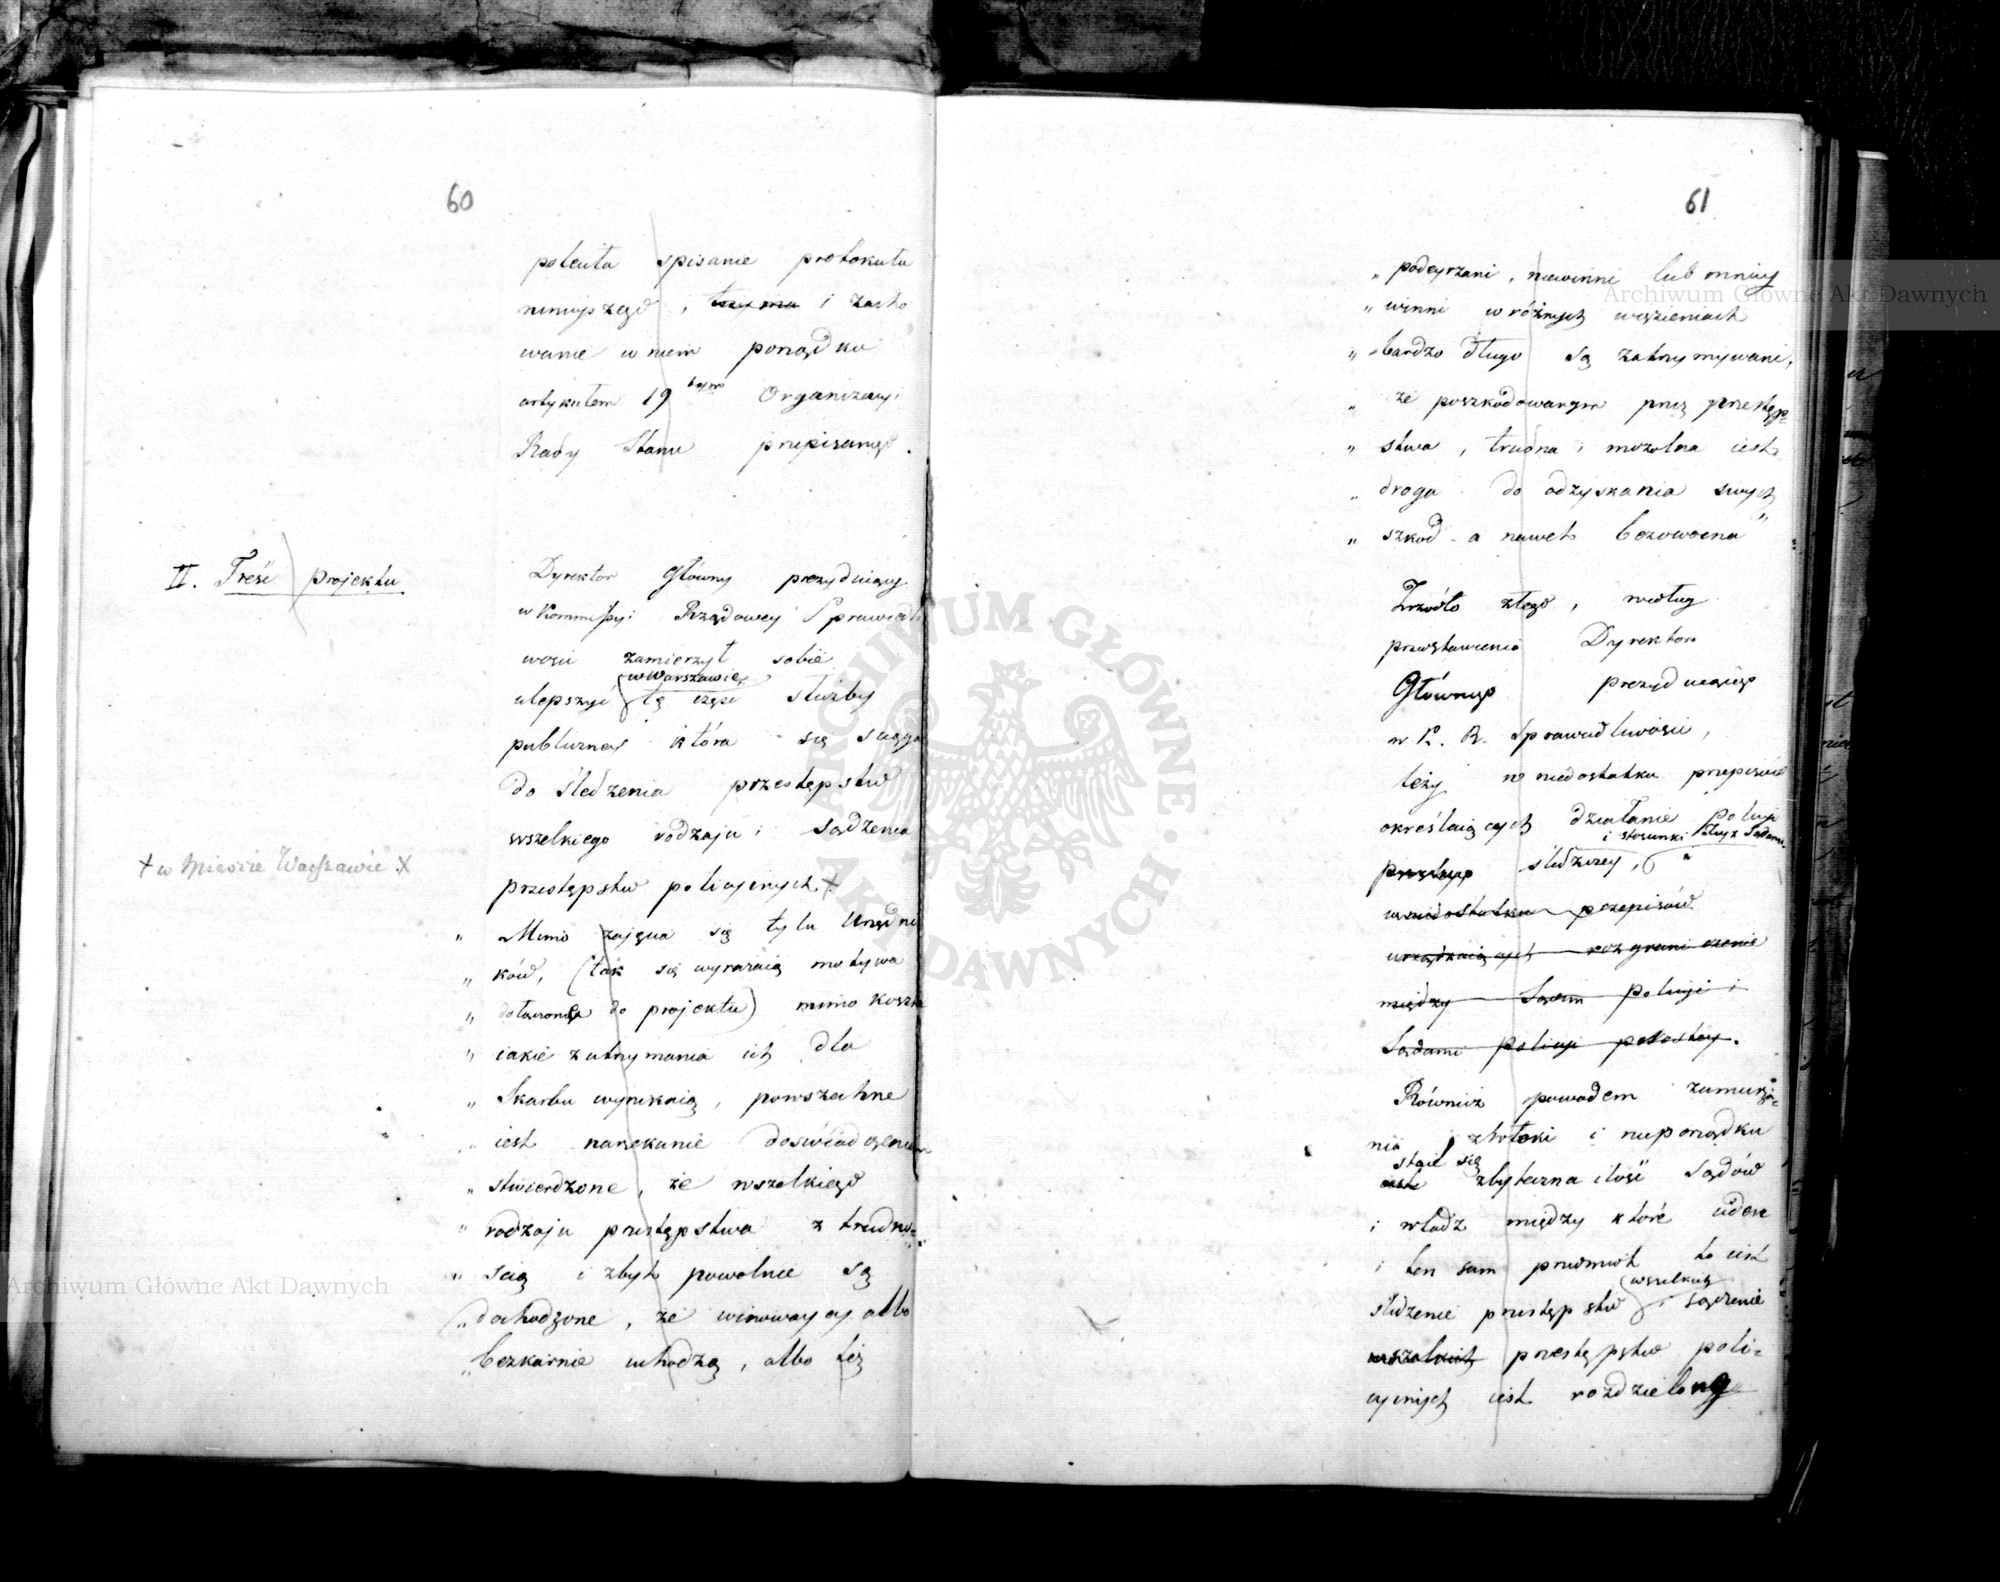 60
poleciła spisanie protokułu
ninieyszego, trzyma i zacho
wanie w niem porządku
artykułem 19 tym Organizacyi
Rady Stanu przepisanego.
II. Treść projektu
Dyrektor Główny prezyduiący
w Kommissyi Rządowey Sprawiedli
wości zamierzył sobie
w Warszawie
ulepszyć tę część służby
publiczney która się sciąga
do śledzenia przestępstw
wszelkiego rodzaju i sądzenia
przestępstw policyinych X
+ w Mieście Warszawie X
„ Mimo zajęcia się tylu Urzędni
„ ków, (tak się wyrażaią motywa
„ dołączone do projektu) mimo koszta
„ iakie z utrzymania ich dla
„ Skarbu wynikaią, powszechne
„ iest narzekanie doświadczeniem
„ stwierdzone, że wszelkiego
„ rodzaju przestępstwa z trudno=
„ scią i zbyt powolnie są
„ dochodzone, że winowaycy albo
„ bezkarnie uchodzą, albo też
61
„ podeyrzani, niewinni lub mniey
„ winni w różnych więzieniach
„ bardzo długo są zatrzymywani,
„ że poszkodowanym przez przestęp=
„ stwa, trudna i mozolna iest
„ droga do odzyskania swych
„ szkod a nawet bezowocna"
Zrzódło złego, według
przedstawienia Dyrektora
Głównego prezyduiącego
w K. R. Sprawiedliwości,
leży w niedostatku przepisów
określaiących działanie Policyi
i stosunki Jey z Sądami.
śledczey,
w niedostatku przepisów
urządzaiących rozgraniczenie
między Sądem policyi i
Sądami policyi prostey.
Również powodem zamiesza=
nia zwłoki i nieporządku
staie się
iest zbyteczna ilość Sądów
i władz między które ieden
i ten sam przedmiot to iest
wszelkich
śledzenie przestępstw i sądzenie
wszelkich przestępstw poli=
cyinych iest rozdzielony
Archiwum Główne Akt Dawnych
Archiwum Główne Akt Dawnych
ARCHIWUM GŁÓWNE AKT DAWNYCH